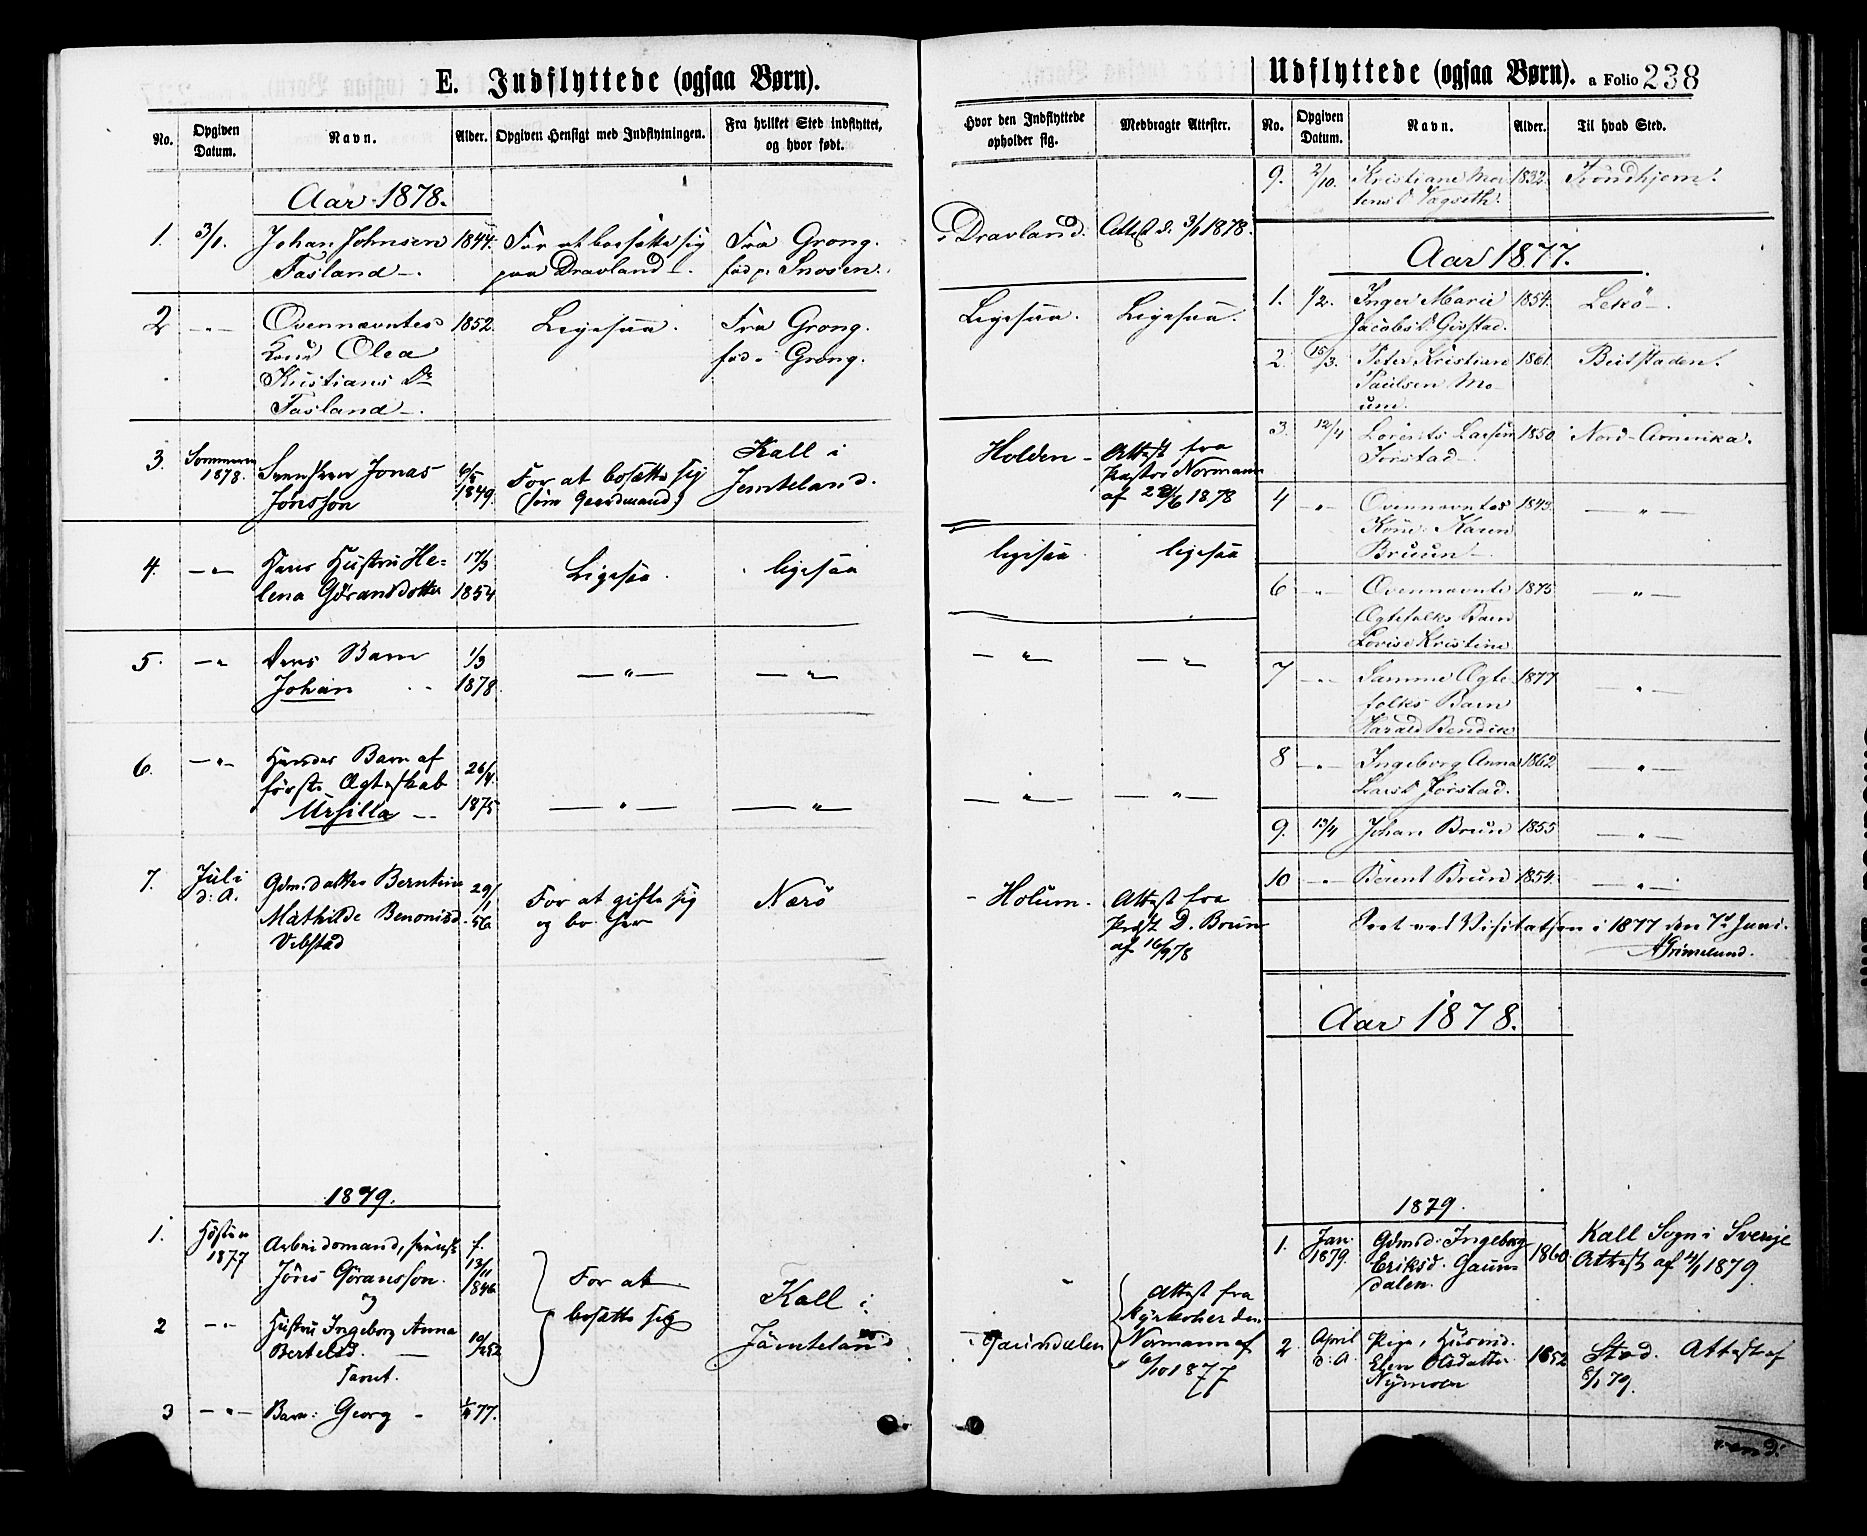 E. Indflyttede (ogsaa Børn).
No.
Opgiven Datum.
Navn.
Alder.
Opgiven Hensigt med Indflytningen.
Fra hvilket Sted indflyttet, og hvor født.
Aar 1878.
1. 3/1. Johan Johnsen 1844. For at bosætte sig Fra Grong.
Fasland paa Dravland fød p. Snosen.
2 -"- Ovennævntes 1852. Ligesaa. Fra Grong.
Kone Olea fød i Grong.
Kristians Dr
Fasland
3. Sommeren 1878. Svensken Jonas 1849. For at bosætte sig Kall i
Jonsson (som Gaardmand) Jemteland.
4. -"- Hans Hustru He- 17/3 Ligesaa. ligesaa
lena Göransdotter 1854
5. -"- Deres Barn 1/3 -"- -"-
Johan 1878.
6. -"- Hendes Barn af 26/4. -"- -"-
første Ægteskab
Ursilla 1875
7. Juli d. A. Gdmdatter Berntine 29/1 For at gifte sig Nærö
Mathilde Benonisd. 56 og bo her
Vebstad
1879.
1. Høsten 1877 Arbeidsmand, svensk f. 13/11 1846 For at Kall i
Jöns Göransson. bosætte sig Jämteland
og
2 -"- Hustru Ingeborg Anna
Bertelsd. 10/2 52
samt.
3 -"- Barn: Georg 77.
Hvor den Indflyttede opholder sig.
Medbragte Attester.
i Dravland. Attest d. 3/1 1878.
Ligesaa. Ligesaa.
Holden Attest fra
Pastor Normann
af 1878
ligesaa ligesaa
-"- -"-
-"- -"-
Holum. Attest fra
Prost D. Bruun
af 16/9 78
Gaundalen Attest fra
Kyrkoherden
Normann af
6/10 1877
Udflyttede (ogsaa Børn). a Folio 238
No.
Opgiven Datum.
Navn.
Alder.
Til hvad Sted.
9. 2/10. Kristiane Mor- 1832. Trondhjem.
tensd. Vagseth.
Aar 1877.
1. 1/2. Inger Marie 1854. Lekö
Jacobsd. Givstad.
2. 15/3. Peter Kristian 1861. Beitstaden.
Paulsen Mo-
um.
3. 12/4 Lorents Larsen 1850. Nord-Amerika.
Jørstad
4 -"- Ovennævntes 1843. -"-
Kone Karen
Bruun
6 -"- Ovennævnte 1875 -"-
Ægtefolks Barn
Lovise Kristine
7 -"- Samme Ægte- 1877 -"-
folks Barn
Harald Bendik
8 -"- Ingeborg Anna 1862 -"-
Larsd. Jørstad.
9. 13/4 Johan Brun 1855 -"-
10 -"- Bernt Brun 1854. -"-
Seet ved Visitatsen i 1877 den 7d Juni.
AGrimelund.
Aar 1878.
1879.
1. Jan. 1879. Gdmd. Ingeborg 1860. Kall Sogn i Sverige
Eriksd. Gaun- Attest af 1879.
dalen.
2. April d. A. Pige, Husmd. 1852 Stod. Attest af
Elen Olsdatter 79.
Nymoen
vend.